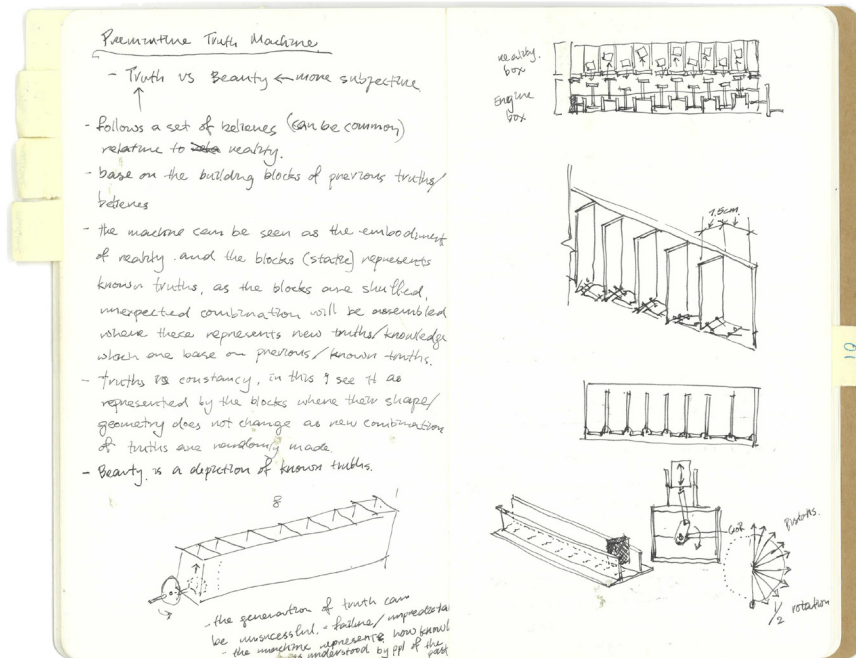 Preminitive Truth Machine
- Truth vs Beauty ← more subjective
- follows a set of believes (can be common)
relative to reality.
- base on the building blocks of previous truths/
believes
- the machine can be seen as the embodiment
of reality. and the blocks (static) represents
known truths, as the blocks are shuffled,
unexpected combination will be assembled
where these represents new truths/knowledge
which are base on previous/known truths.
- truths is constancy, in this I see it as
represented by the blocks where their shape/
geometry does not change as new combination
of truths are randomly made.
- Beauty is a depiction of known truths.
- the generation of truth can
be unsuccessful. - failure/
- the machine represents how
understood by ppl of the
past
reality.
box
Engine
box
1.5cm.
Pistons.
1/2 rotation
10